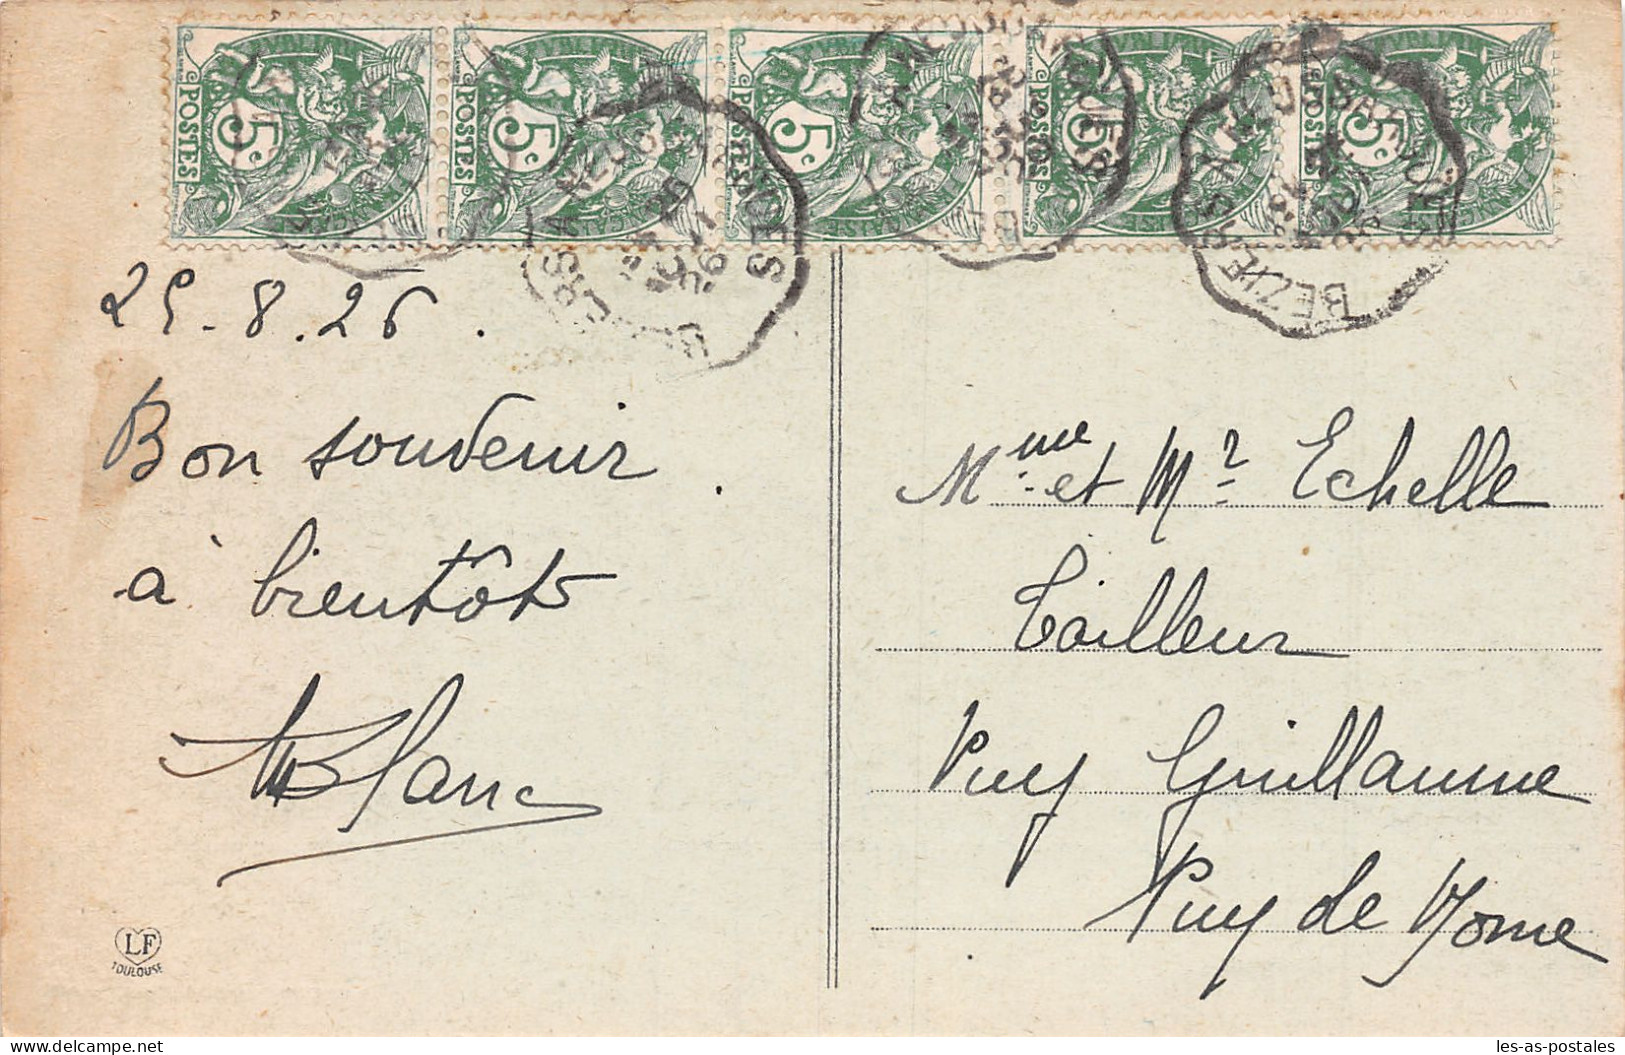 POSTES 5c
POSTES 5c
POSTES 5c
POSTES 5c
POSTES 5c
BEZIERS A NEUSSARGUES
25.8.26.
Bon souvenir
à bientôt
Blanc
LF
TOULOUSE
Mme et Mr Echelle
Tailleur
Puy Guillaume
Puy de Dome
les-as-postales